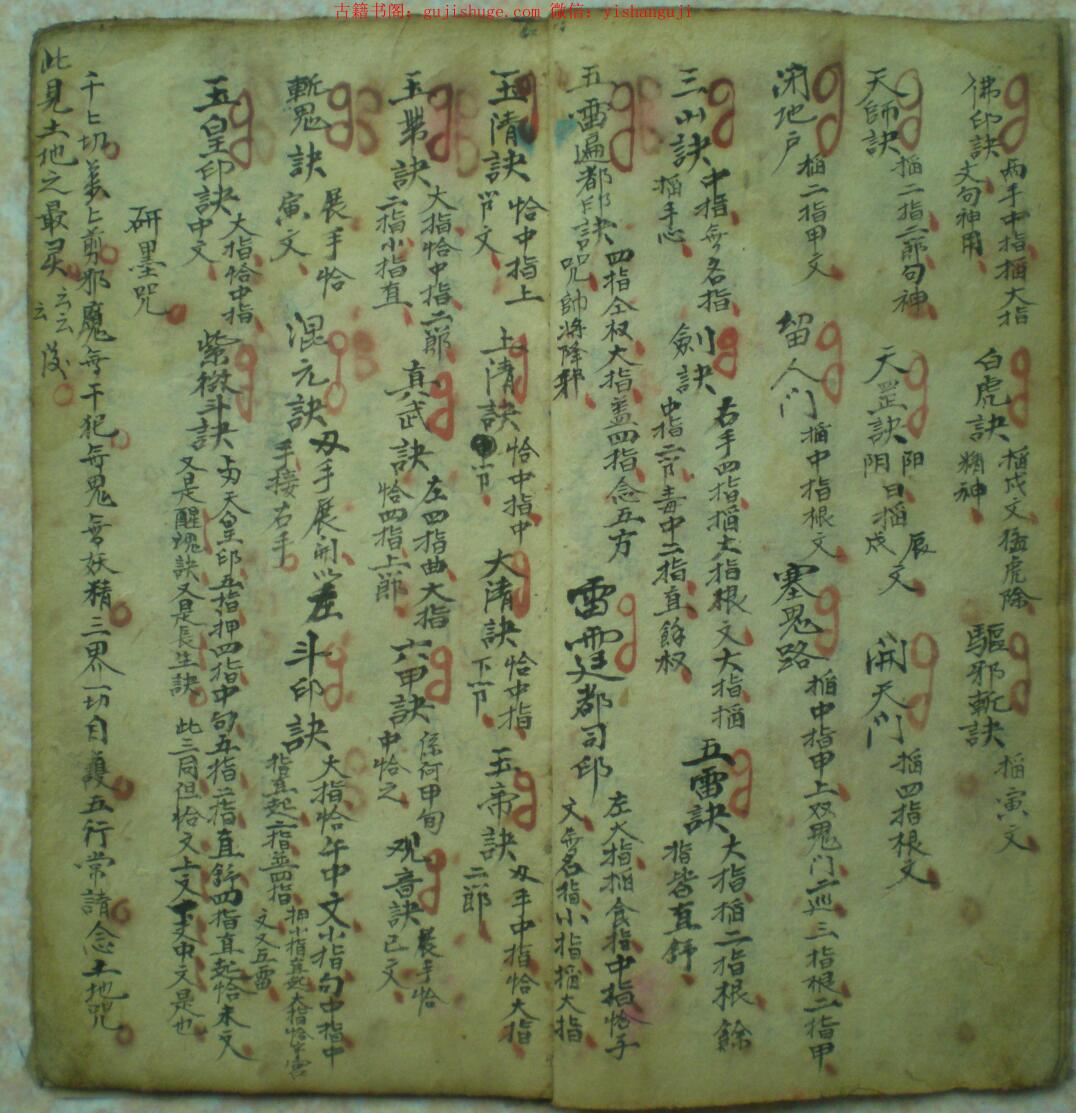 古籍书阁：gujishuge.com 微信：yishanguji
佛印訣 两手中指搯大指文句神用 白虎訣 搯戌文猛虎除精神 驅邪斬訣 搯寅文
天師訣 搯二指二節句神 天罡訣 阳日搯辰文 阴日搯戍 開天门 搯四指根文
闭地户 搯二指甲文 留人门 搯中指根文 塞鬼路 搯中指甲上双鬼门二巡三指根二指甲
三山訣 中指無名指搯手心 劍訣 右手四指搯大指根文大指搯中指二节毒中二指直餘权 五雷訣 大指搯二指根餘指皆直舒
五雷遍都印訣 四指仝权大指盖四指念五方咒帥將降邪 雷霆都司印 左大指搯食指中指恰子文無名指小指搯大指
玉清訣 恰中指上节文 上清訣 恰中指中节 太清訣 恰中指下节 玉帝訣 双手中指恰大指二節
玉帯訣 大指恰中指二節二指小指直 真武訣 左四指曲大指恰四指上節 六甲訣 係何甲旬中恰之 观音訣 展手恰已文
斬鬼訣 展手恰寅文 混元訣 双手展開以左手接右手 斗印訣 大指恰午中文小指句中指中指直起二指並四指
玉皇印訣 大指恰中指中文 紫微斗訣 为天皇印五指押四指中句五指二指直舒四指直起恰未文又是醒魂訣又是長生訣 此三同但恰文上文中文是也
研墨咒
千千切万万剪邪魔無干犯無鬼無妖精三界一切自護五行常請念土地咒
此見土地之最灵 云云